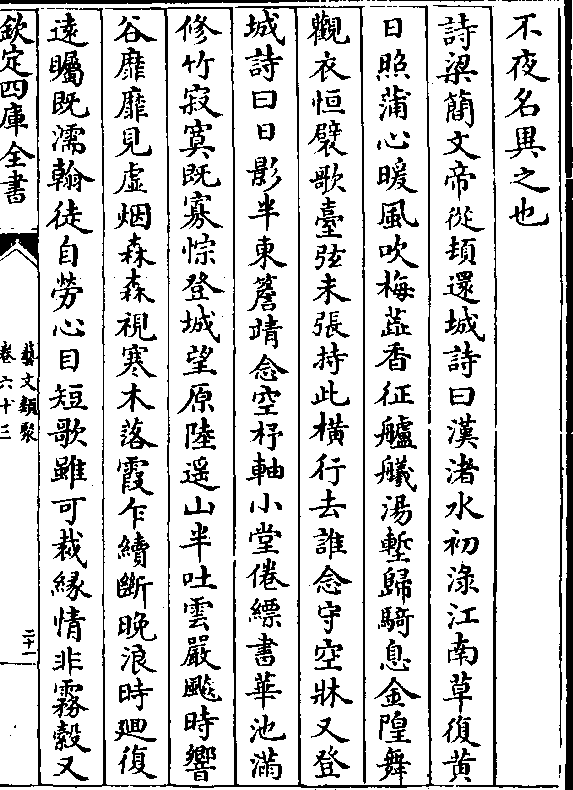 不夜名異之也
詩梁簡文帝從頓還城詩曰漢渚水初淥江南草復黃
日照蒲心暖風吹梅蕋香征艫艤湯塹歸騎息金隍舞
觀衣恒襞歌臺弦未張持此橫行去誰念守空牀又登
城詩曰日影半東簷靖念空杼軸小堂倦縹書華池滿
修竹寂寞既寡悰登城望原陸遥山半吐雲嚴飈時響
谷靡靡見虚烟森森視寒木落霞乍續斷晚浪時廻復
遠矚既濡翰徒自勞心目短歌雖可裁緣情非霧縠又
欽定四庫全書
藝文類聚
卷六十三
二十一